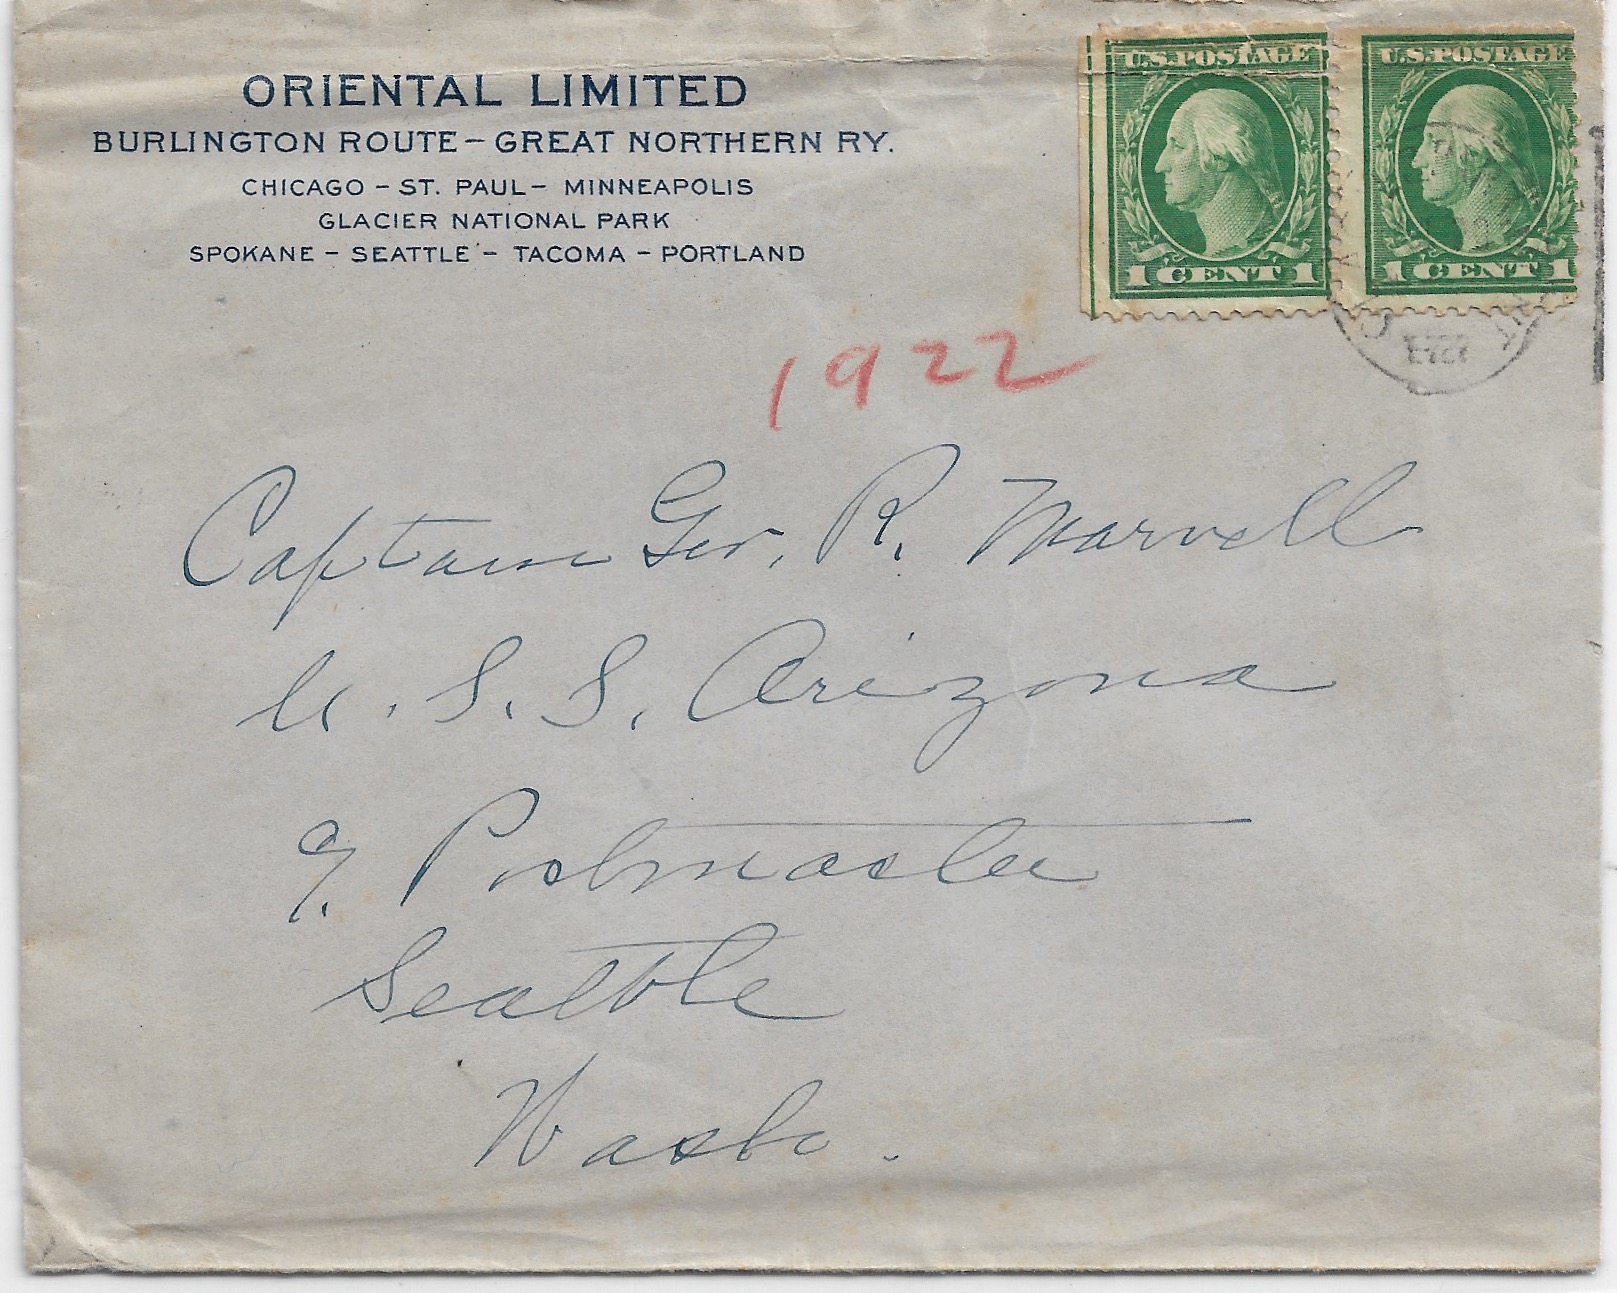 ORIENTAL LIMITED
BURLINGTON ROUTE – GREAT NORTHERN RY.
CHICAGO – ST. PAUL – MINNEAPOLIS
GLACIER NATIONAL PARK
SPOKANE – SEATTLE – TACOMA – PORTLAND
U.S. POSTAGE
1 CENT 1
U.S. POSTAGE
1 CENT 1
1922
Captain Geo. R. Marvell
U.S.S. Arizona
Postmaster
Seattle
Wash.